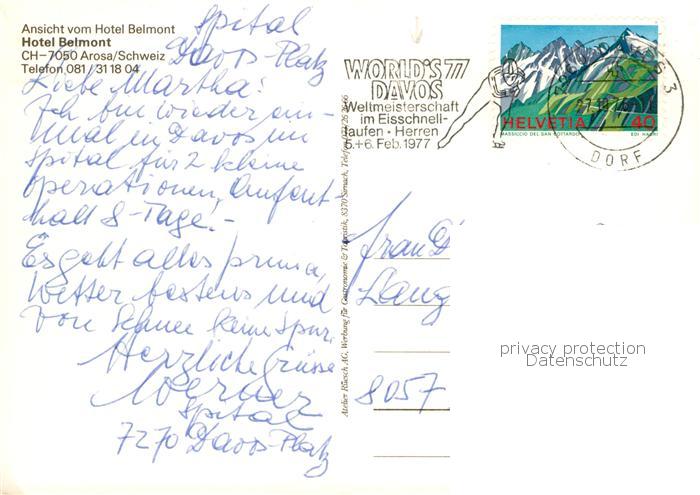 Ansicht vom Hotel Belmont
Hotel Belmont
CH-7050 Arosa/Schweiz
Telefon 081/31 18 04
Spital
Davos-Platz
Liebe Martha!
Ich bin wieder ein-
mal in Davos im
Spital für 2 kleine
Operationen, Aufent-
halt 8-Tage.-
Es geht alles prima,
Wetter bestens und
von Schnee keine Spur.
Herzliche Grüsse
Werner
Spital
7270 Davos-Platz
Atelier Rüesch AG, Werbung für Gastronomie & Touristik, 8370 Sirnach, Telefon
WORLD'S 77
DAVOS
Weltmeisterschaft
im Eisschnell-
laufen • Herren
5.+6. Feb. 1977
HELVETIA 40
MASSICCIO DEL SAN GOTTARDO
DORF
3
Frau
Lang
8057
privacy protection
Datenschutz